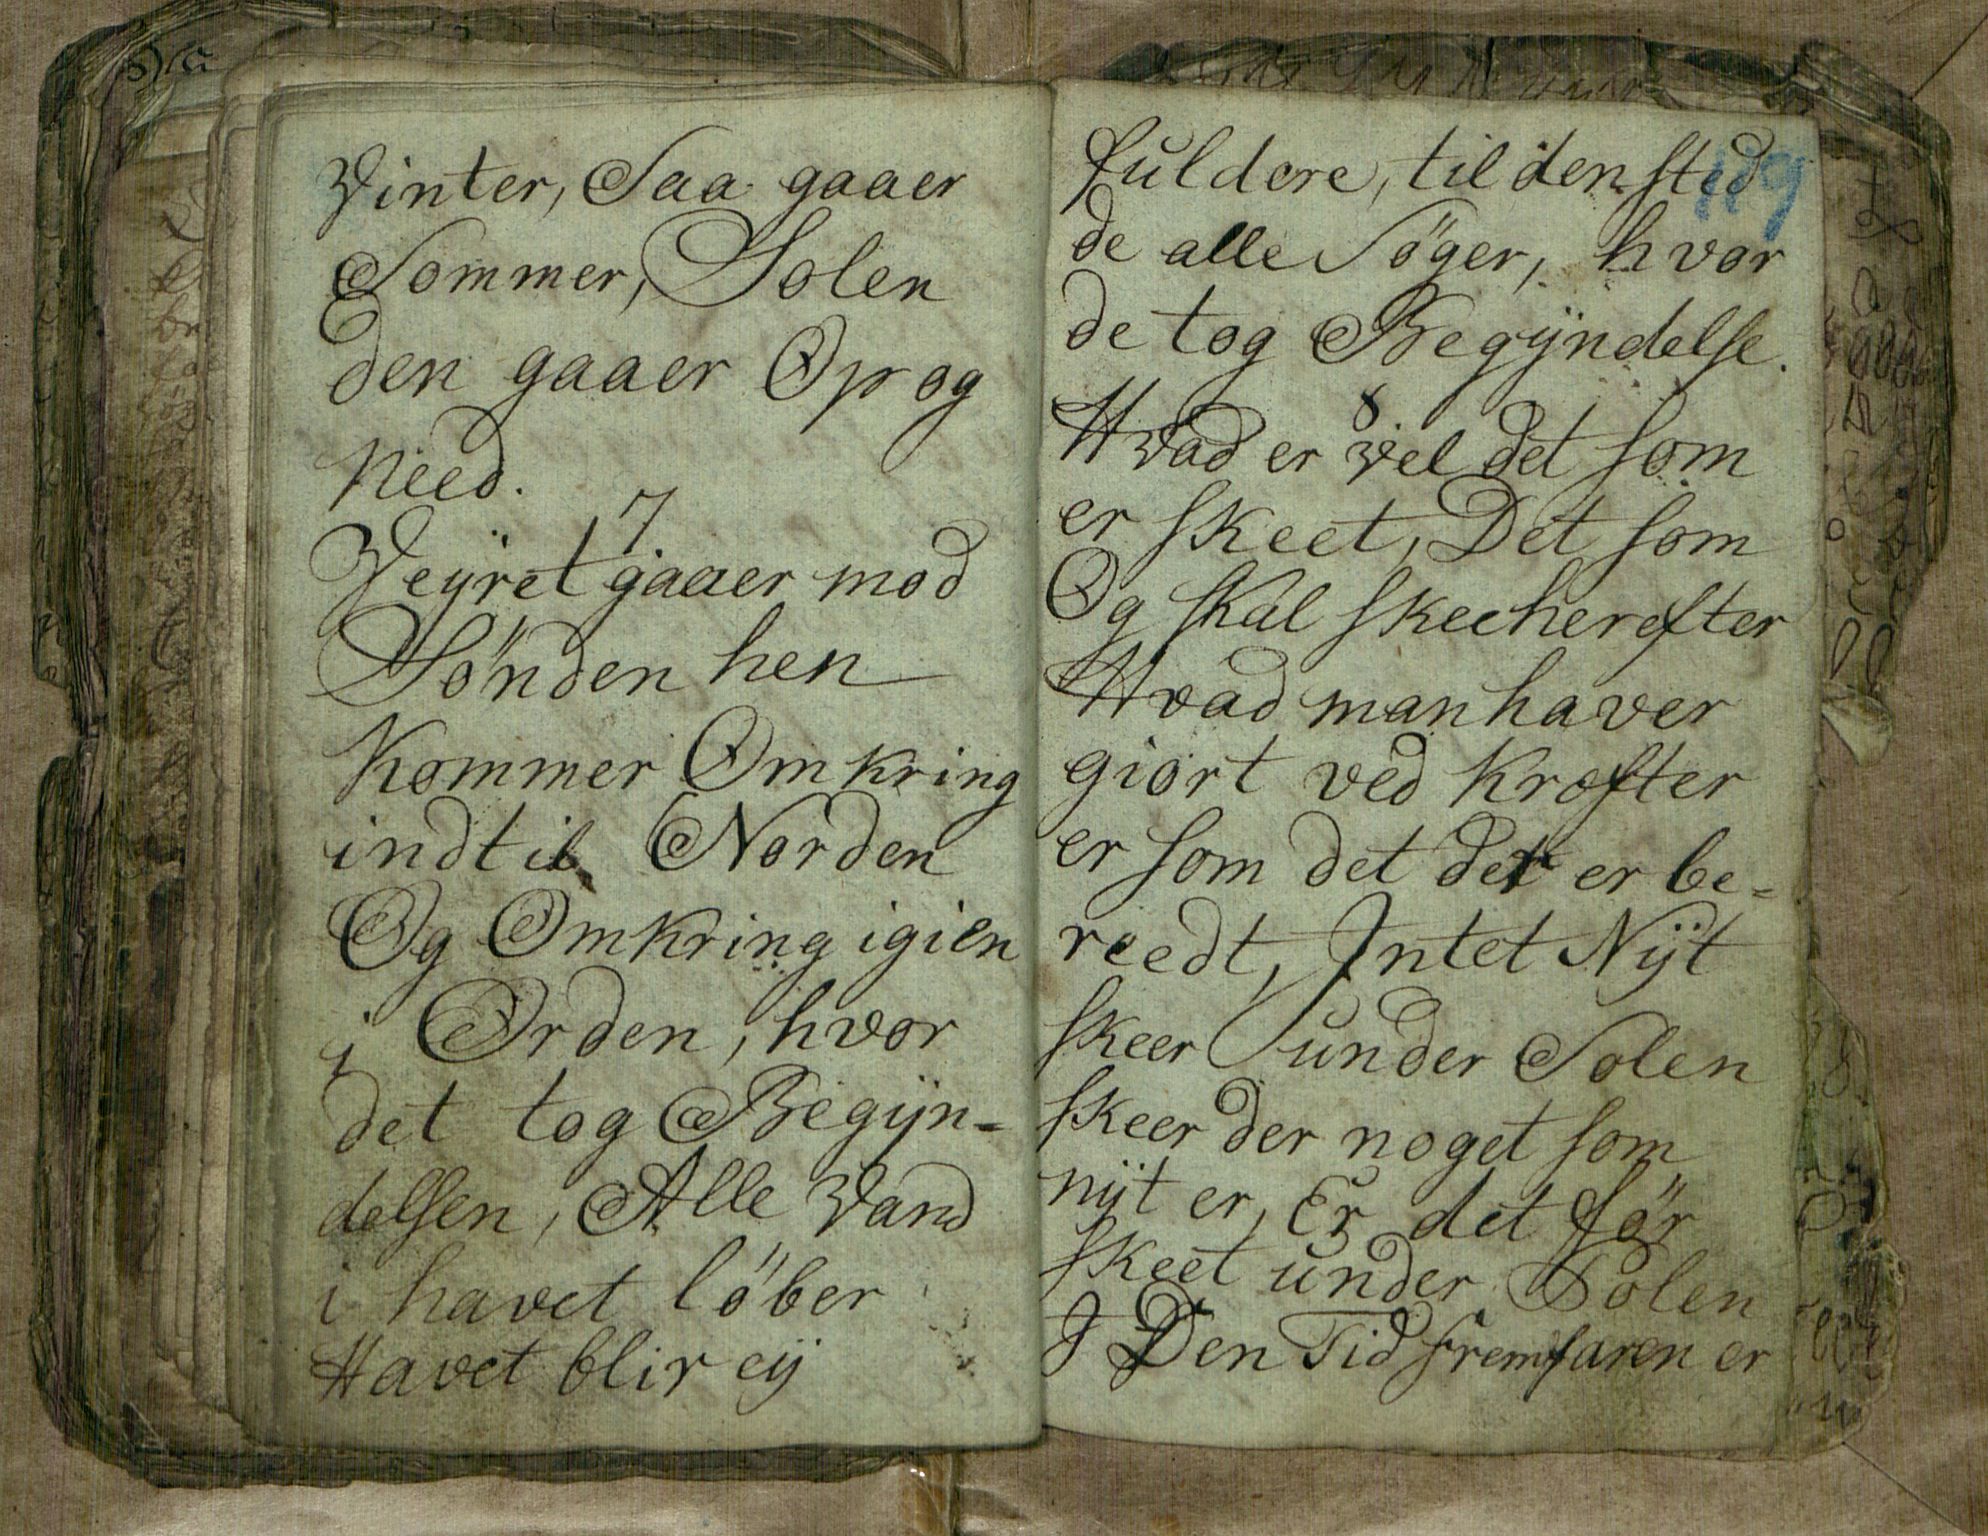 Vinter, Saa gaaer
Sommer, Solen
den gaaer Op og
Need.
7
Veÿret gaaer mod
Sönden hen
Kommer Omkring
indtil Norden
Og Omkring igien
i Orden, hvor
det tog Begÿn-
delsen, Alle Vand
i havet löber
Havet blir eÿ
189
fuldere, til den sted
de alle Söger, hvor
de tog Begÿndelse.
8
Hvad er vel det som
er skeet, Det som
Og skal skee herefter
Hvad man haver
giort ved Kræfter
er som det der er be-
reedt, Intet Nÿt
skeer under Solen
skeer der noget som
nÿt er, Er det för
skeet under Solen
I Den Tid fremfaren er